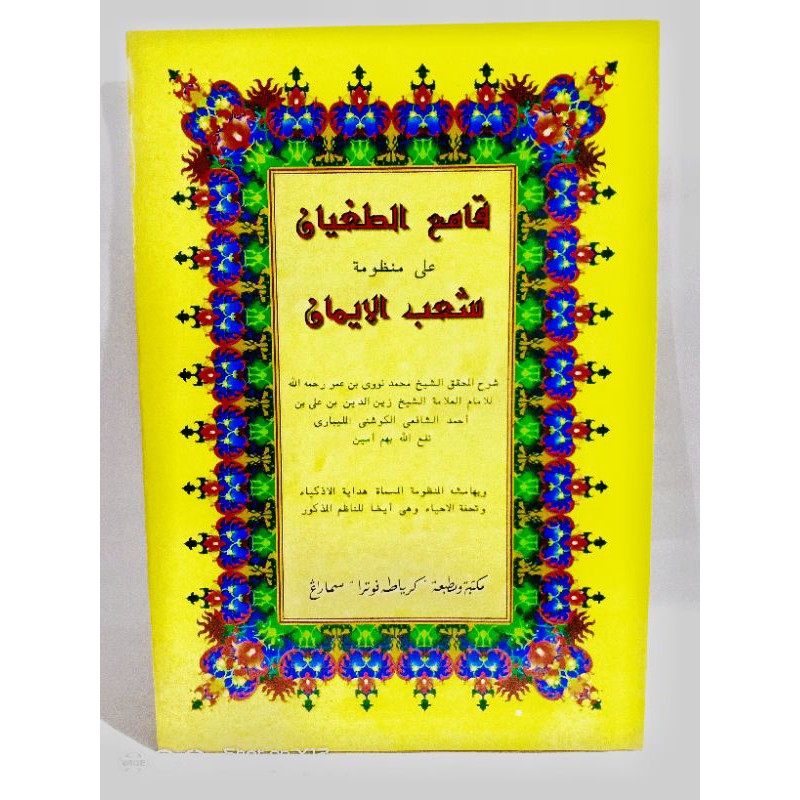 قامع الطغيان
على منظومة
شعب الايمان
شرح المحقق الشيخ محمد نووي بن عمر رحمه الله
للامام العلامة الشيخ زين الدين بن على بن
أحمد الشافعى الكوشنى المليبارى
نفع الله بهم آمين
وبهامشه المنظومة المسماة هداية الاذكياء
وتحفة الاحياء وهى أيضا للناظم المذكور
مكتبة ومطبعة "كرياطه فوترا" سماراڠ